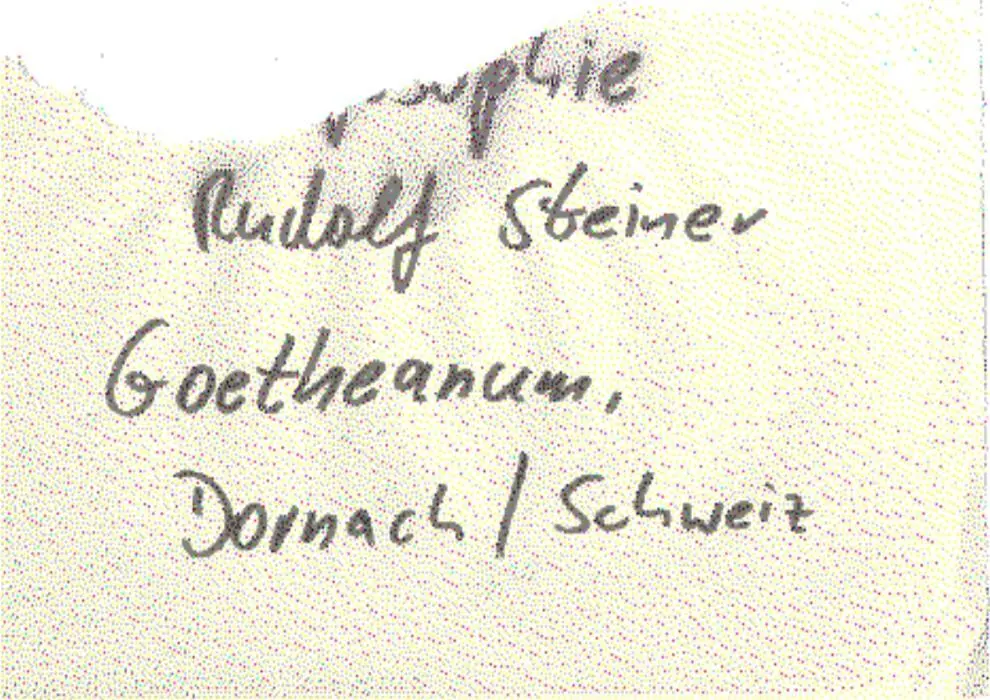 Rudolf Steiner
Goetheanum,
Dornach / Schweiz